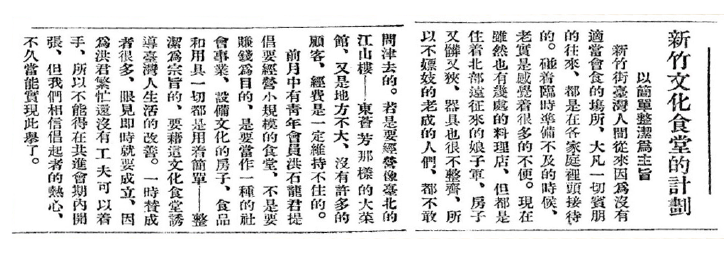 新竹文化食堂的計劃
以簡單整潔爲主旨
新竹街臺灣人間從來因爲沒有
適當會食的場所、大凡一切賓朋
的往來、都是在各家庭裡頭接待
的。碰着臨時準備不及的時候、
老實是感覺着很多的不便。現在
雖然也有幾處的料理店、但都是
住着北部遠征來的娘子軍、房子
又髒又狹、器具也很不整齊、所
以不嫖妓的老成的人們、都不敢
問津去的。若是要經營像臺北的
江山樓——東薈芳那樣的大菜
館、又是地方不大、沒有許多的
顧客、經費是一定維持不住的。
前月中有靑年會員洪石龍君提
倡要經營小規模的食堂、不是要
賺錢爲目的、是要當作一種的社
會事業、設備文化的房子、食品
和用具一切都是用着簡單——整
潔爲宗旨的、要藉這文化食堂誘
導臺灣人生活的改善。一時贊成
者很多、眼見即時就要成立、因
爲洪君繁忙還沒有工夫可以着
手、所以不能得在共進會期內開
張、但我們相信倡起者的熱心、
不久當能實現此舉了。